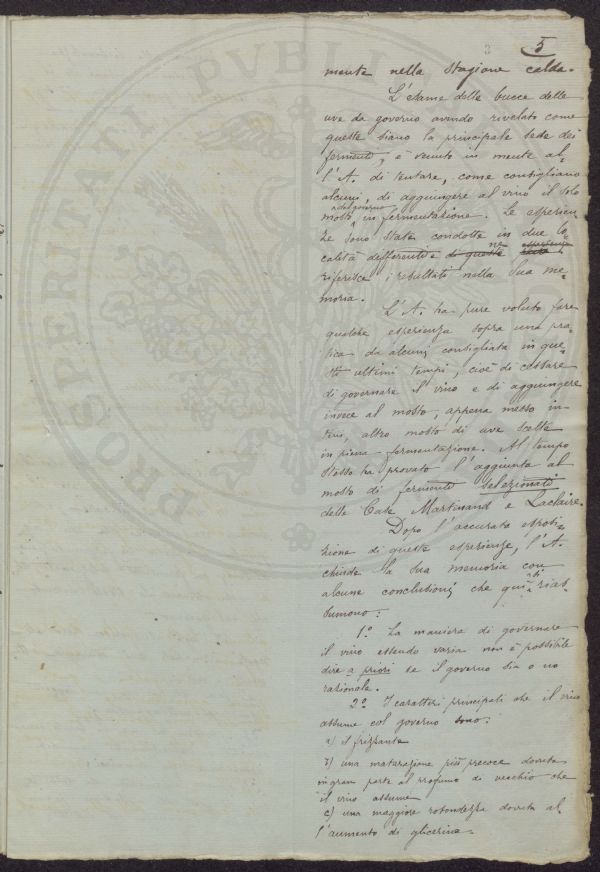 5
mente nella stagione calda.
L'esame delle bucce delle
uve da governo avendo rivelato come
queste siano la principale sede dei
fermenti, è venuto in mente al-
l'A. di tentare, come consigliano
alcuni, di aggiungere al vino il solo
mosto del governo in fermentazione. Le esperien
ze sono state condotte in due lo-
calità differenti e di queste ne esperienze
riferisce i resultati nella sua me-
moria.
L'A. ha pure voluto fare
qualche esperienza sopra una pra-
tica da alcuni consigliata in que-
sti ultimi tempi, cioè di cessare
di governare il vino e di aggiungere
invece al mosto, appena messo in
tino, altro mosto di uve scelte
in piena fermentazione. Al tempo
stesso ha provato l'aggiunta al
mosto di fermenti selezionati
delle Case Martinand e Laclaire.
Dopo l'accurata esposi-
zione di queste esperienze, l'A.
chiude la sua memoria con
alcune conclusioni che qui si rias-
sumono:
1º La maniera di governare
il vino essendo varia non è possibile
dire a priori se il governo sia o no
razionale.
2º I caratteri principali che il vino
assume col governo sono:
a) il frizzante
b) una maturazione più precoce dovuta
in gran parte al profumo di vecchio che
il vino assume
c) una maggiore rotondezza dovuta al
l'aumento di glicerina.
PVBLI
PROSPERITATI